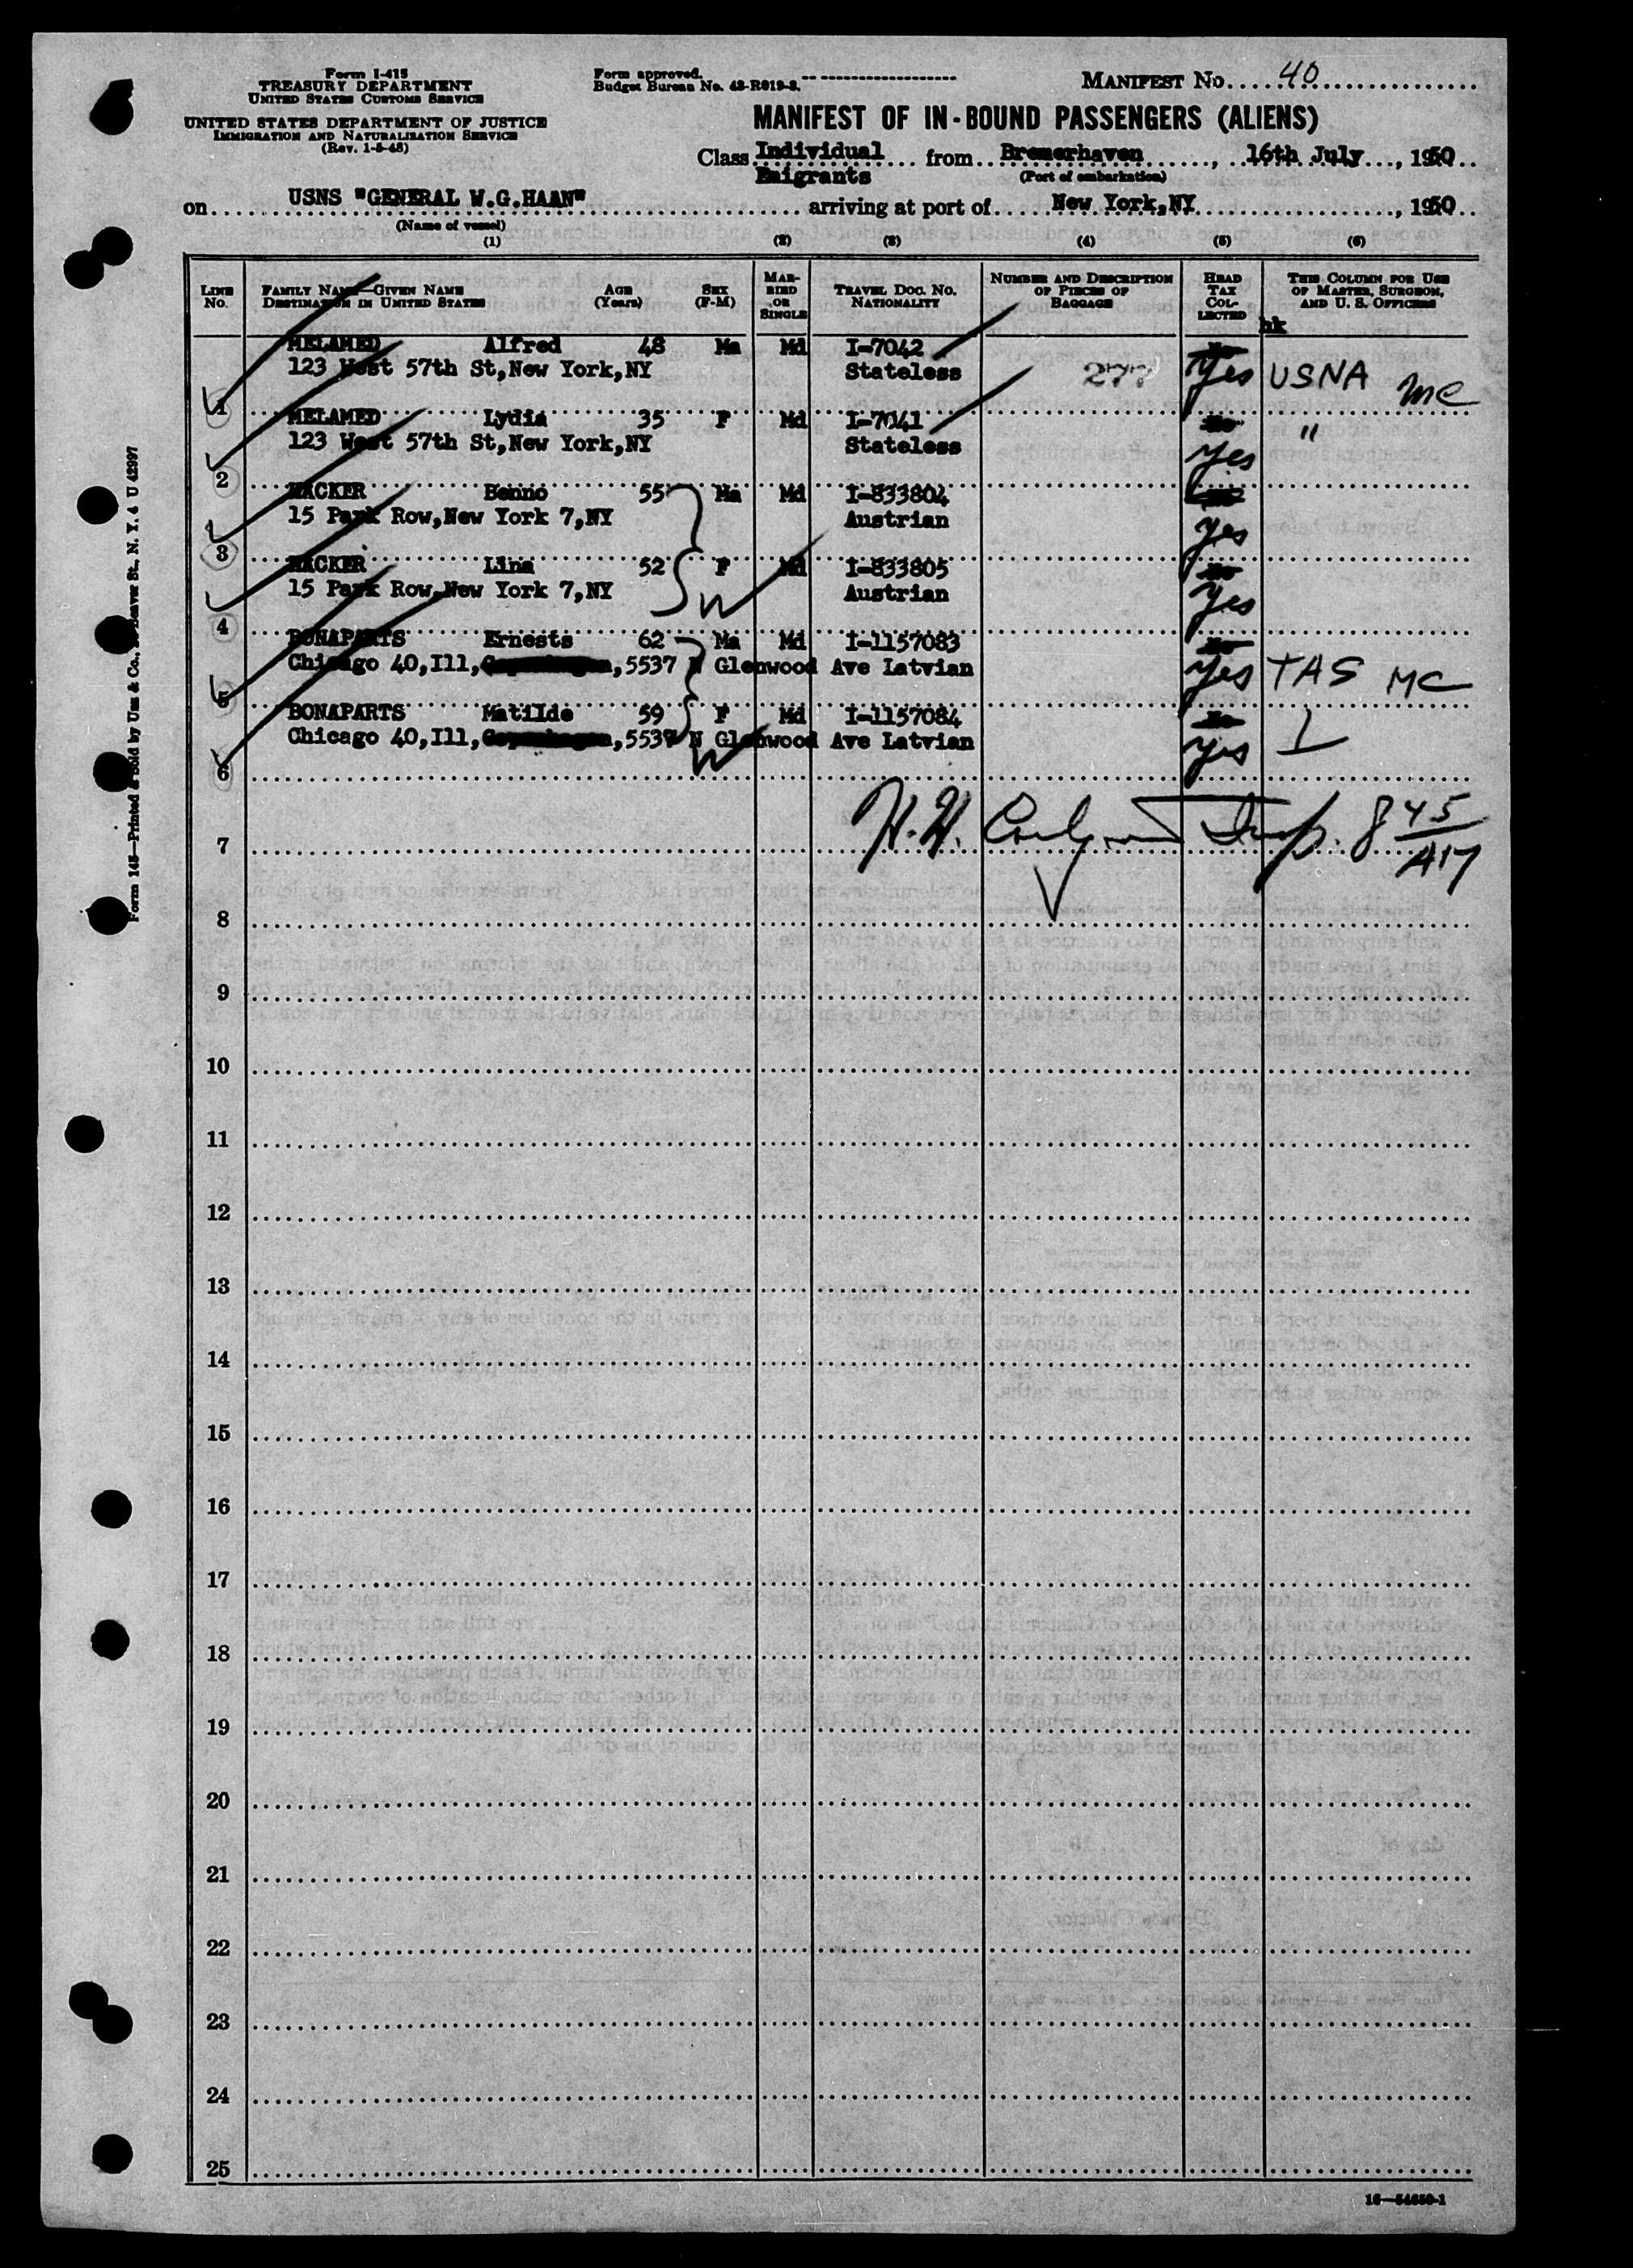 Form I-415
TREASURY DEPARTMENT
UNITED STATES CUSTOMS SERVICE
UNITED STATES DEPARTMENT OF JUSTICE
IMMIGRATION AND NATURALIZATION SERVICE
(Rev. 1-5-48)
Form approved.
Budget Bureau No. 43-R019-3.
MANIFEST NO. 40
MANIFEST OF IN-BOUND PASSENGERS (ALIENS)
Class Individual Emigrants from Bremerhaven, 16th July, 1950
(Port of embarkation)
on USNS "GENERAL W.G.HAAN" arriving at port of New York,NY, 1950
(Name of vessel)
(1) (2) (3) (4) (5) (6)
LINE NO.
FAMILY NAME—GIVEN NAME AGE (Years) SEX (F-M)
DESTINATION IN UNITED STATES
MARRIED OR SINGLE
TRAVEL DOC. NO. NATIONALITY
NUMBER AND DESCRIPTION OF PIECES OF BAGGAGE
HEAD TAX COLLECTED
THIS COLUMN FOR USE OF MASTER, SURGEON, AND U. S. OFFICERS
hk
1 MELAMED Alfred 48 Ma Md I-7042 No
123 West 57th St,New York,NY Stateless 277 Yes USNA MC
2 MELAMED Lydia 35 F Md I-7041 No
123 West 57th St,New York,NY Stateless Yes "
3 HACKER Benno 55 Ma Md I-833804
15 Park Row,New York 7,NY Austrian Yes
4 HACKER Lina 52 F Md I-833805 No
15 Park Row,New York 7,NY W Austrian Yes
5 BONAPARTS Ernests 62 Ma Md I-1157083 No
Chicago 40,Ill, ,5537 N Glenwood Ave Latvian Yes TAS MC
6 BONAPARTS Matilde 59 F Md I-1157084 No
Chicago 40,Ill, ,5537 N Glenwood Ave W Latvian Yes
7 H.H. Insp. 8 45/A17
8
9
10
11
12
13
14
15
16
17
18
19
20
21
22
23
24
25
16—54650-1